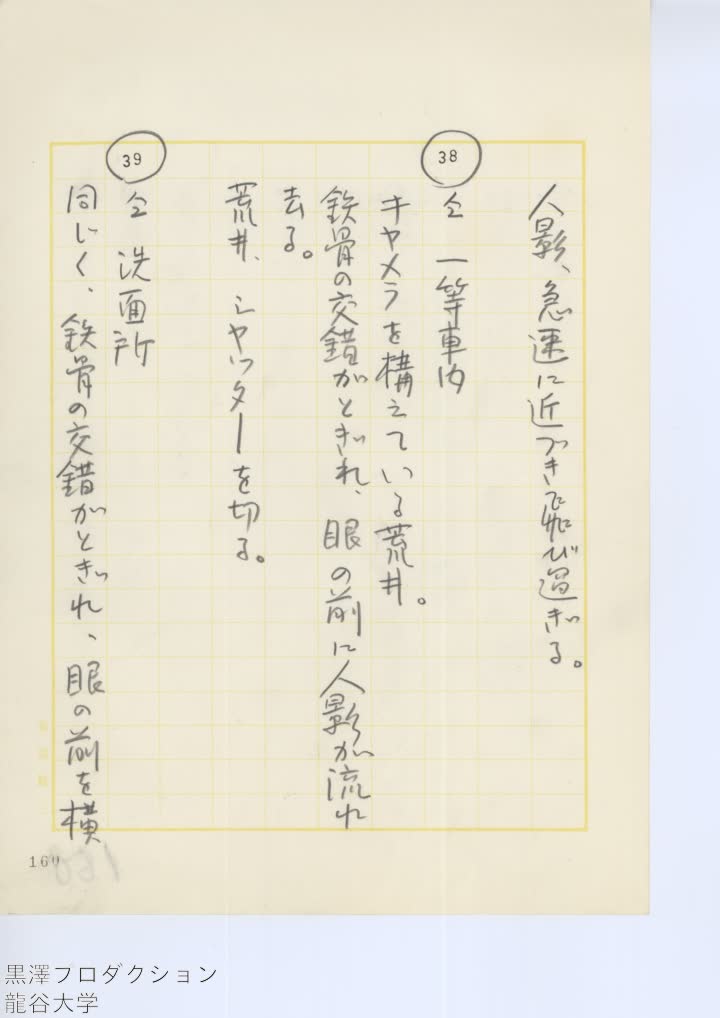 人影、急速に近づき飛び過ぎる。
38
仝 一等車内
キャメラを構えている荒井。
鉄骨の交錯がとぎれ、眼の前に人影が流れ
去る。
荒井、シャッターを切る。
39
仝 洗面所
同じく、鉄骨の交錯がとぎれ、眼の前を横
160
黒澤プロダクション
龍谷大学